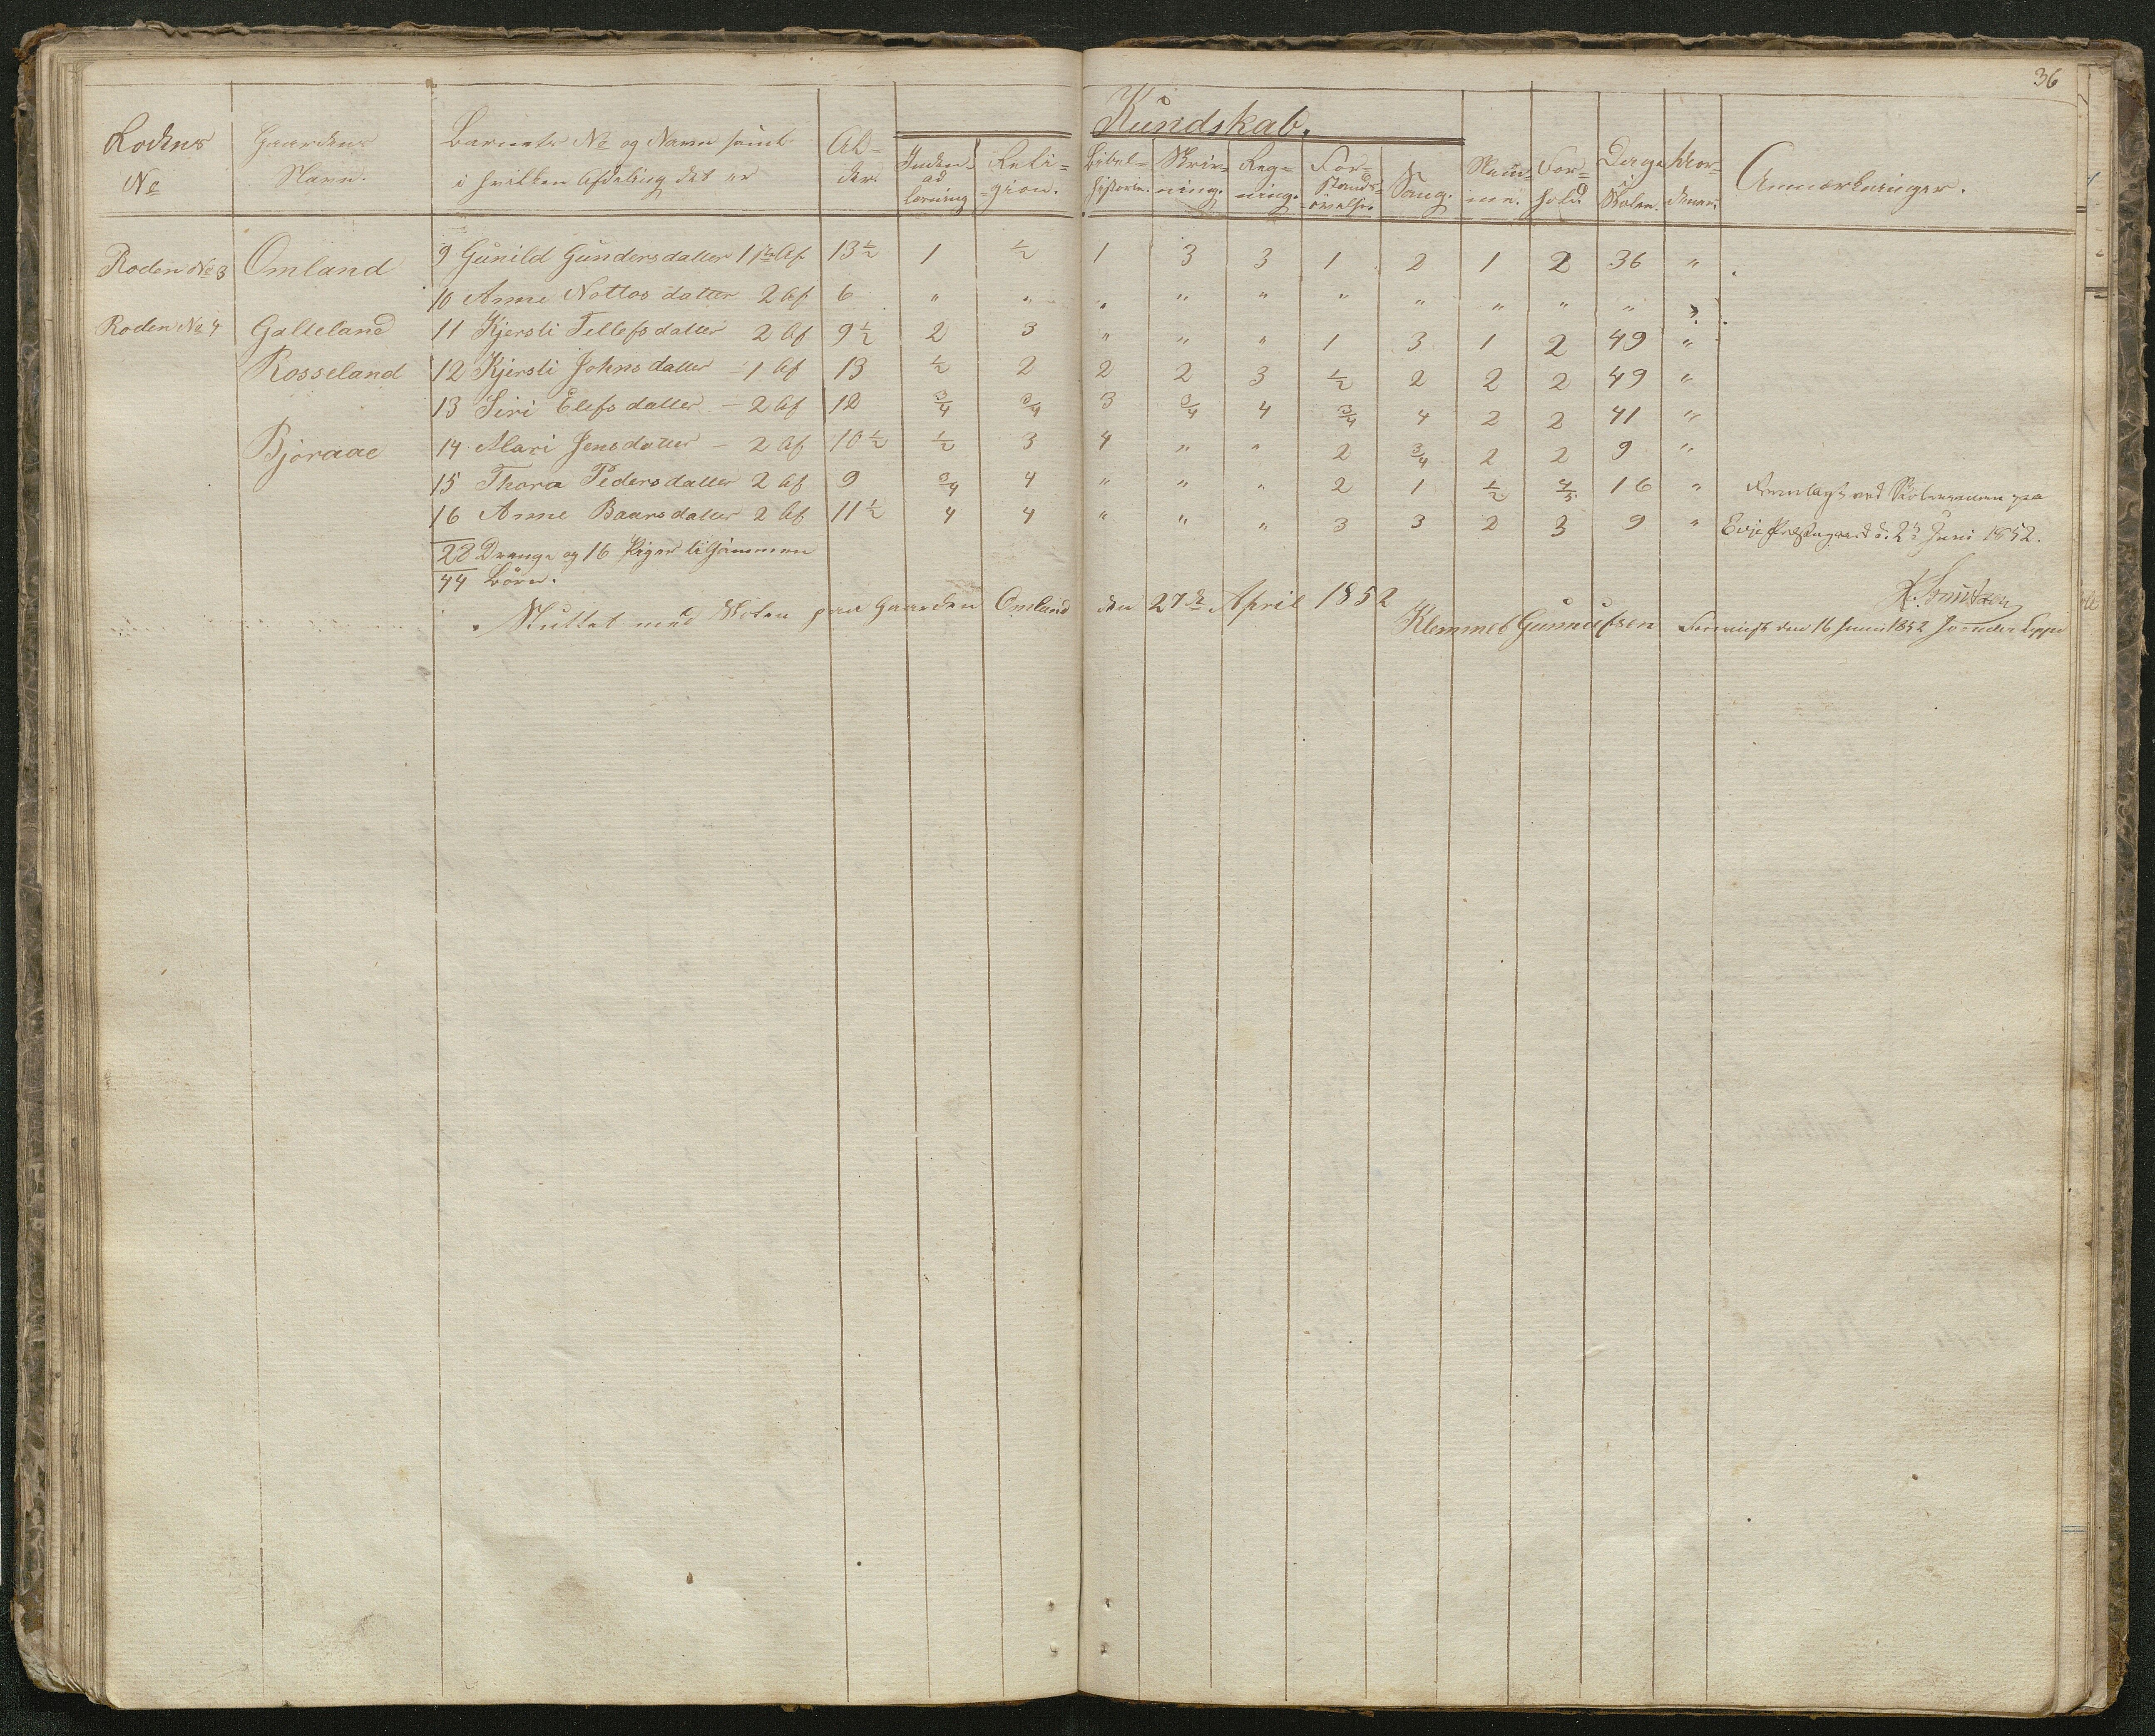 36
Kundskab.
Rodens No | Gaardens Navn. | Barnets No og Navn samt i hvilken Afdeling det er | Alder. | Inden ad læsning | Religion. | Bibelhistorie. | Skrivning. | Regning. | Forstands-övelse. | Sang. | Nemme. | Forhold | Dage i Skolen. | Anmærkninger.
Roden No 3 | Omland | 9 Gunild Gundersdatter 1ste Af | 13½ | 1 | ½ | 1 | 3 | 3 | 1 | 2 | 1 | 2 | 36 | "
10 Anne Nottos datter 2 Af | 6 | " | " | " | " | " | " | " | " | " | " | "
Roden No 4 | Galteland | 11 Kjersti Tellefsdatter 2 Af | 9½ | 2 | 3 | " | " | " | 1 | 3 | 1 | 2 | 49 | "
Rosseland | 12 Kjersti Johnsdatter - 1 Af | 13 | ½ | 2 | 2 | 2 | 3 | ½ | 2 | 2 | 2 | 49 | "
13 Siri Elefsdatter - 2 Af | 12 | ¾ | ¾ | 3 | ¾ | 4 | ¾ | 4 | 2 | 2 | 41 | "
Björaae | 14 Mari Jensdatter - 2 Af | 10½ | ½ | 3 | 4 | " | " | 2 | ¾ | 2 | 2 | 9 | "
15 Thora Pedersdatter 2 Af | 9 | ¾ | 4 | " | " | " | 2 | 1 | ½ | 4/5 | 16 | " | Fremlagt ved Skolexamen paa
16 Anne Baarsdatter 2 Af | 11½ | 4 | 4 | " | " | " | 3 | 3 | 2 | 3 | 9 | " | Evje Præstegaard d. 2 Juni 1852.
28 Drenge og 16 Piger tilsammen
44 Börn.
Sluttet med Skolen paa Gaarden Omland den 27de April 1852
Klemmet Gunnufsen
Foreviist den 16 Juni 1852